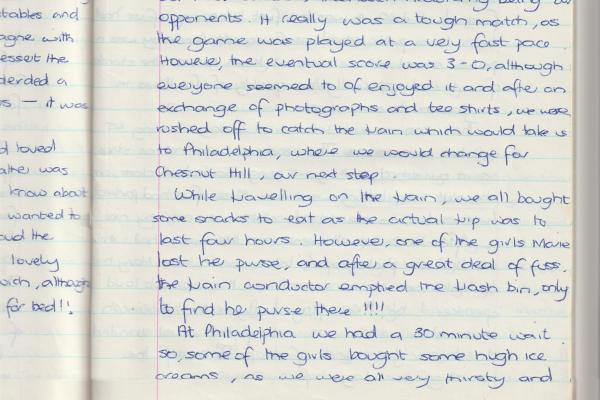 tables and
agne with
dessert the
derded a
s — it was
d loved
ather was
know about
wanted to
oud the
lovely
wich, although
for bed!!
opponents. It really was a tough match, as
the game was played at a very fast pace.
However, the eventual score was 3-0, although
everyone seemed to of enjoyed it and after an
exchange of photographs and tee shirts, we were
rushed off to catch the train which would take us
to Philadelphia, where we would change for
Chesnut Hill, our next stop.
While travelling on the train, we all bought
some snacks to eat as the actual trip was to
last four hours. However, one of the girls Marie
lost her purse, and after a great deal of fuss,
the train conductor emptied the trash bin, only
to find her purse there !!!!
At Philadelphia we had a 30 minute wait
so, some of the girls bought some hugh ice
creams, as we were all very thirsty and